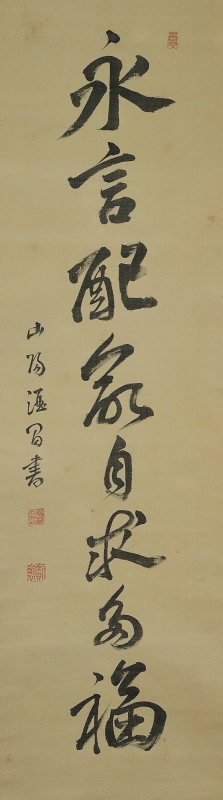 永言配命自求多福
山陽酒間書